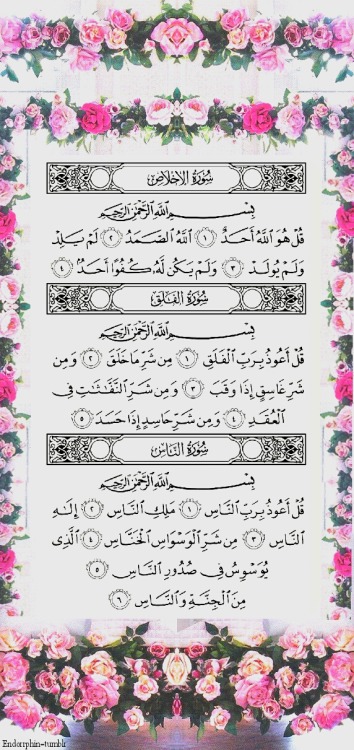 سُورَةُ الإِخْلَاصِ
بِسْمِ اللَّهِ الرَّحْمَٰنِ الرَّحِيمِ
قُلْ هُوَ اللَّهُ أَحَدٌ ١ اللَّهُ الصَّمَدُ ٢ لَمْ يَلِدْ
وَلَمْ يُولَدْ ٣ وَلَمْ يَكُن لَّهُ كُفُوًا أَحَدٌ ٤
سُورَةُ الفَلَقِ
بِسْمِ اللَّهِ الرَّحْمَٰنِ الرَّحِيمِ
قُلْ أَعُوذُ بِرَبِّ الْفَلَقِ ١ مِن شَرِّ مَا خَلَقَ ٢ وَمِن
شَرِّ غَاسِقٍ إِذَا وَقَبَ ٣ وَمِن شَرِّ النَّفَّاثَاتِ فِي
الْعُقَدِ ٤ وَمِن شَرِّ حَاسِدٍ إِذَا حَسَدَ ٥
سُورَةُ النَّاسِ
بِسْمِ اللَّهِ الرَّحْمَٰنِ الرَّحِيمِ
قُلْ أَعُوذُ بِرَبِّ النَّاسِ ١ مَلِكِ النَّاسِ ٢ إِلَٰهِ
النَّاسِ ٣ مِن شَرِّ الْوَسْوَاسِ الْخَنَّاسِ ٤ الَّذِي
يُوَسْوِسُ فِي صُدُورِ النَّاسِ ٥
مِنَ الْجِنَّةِ وَالنَّاسِ ٦
Endorrphin-tumblr